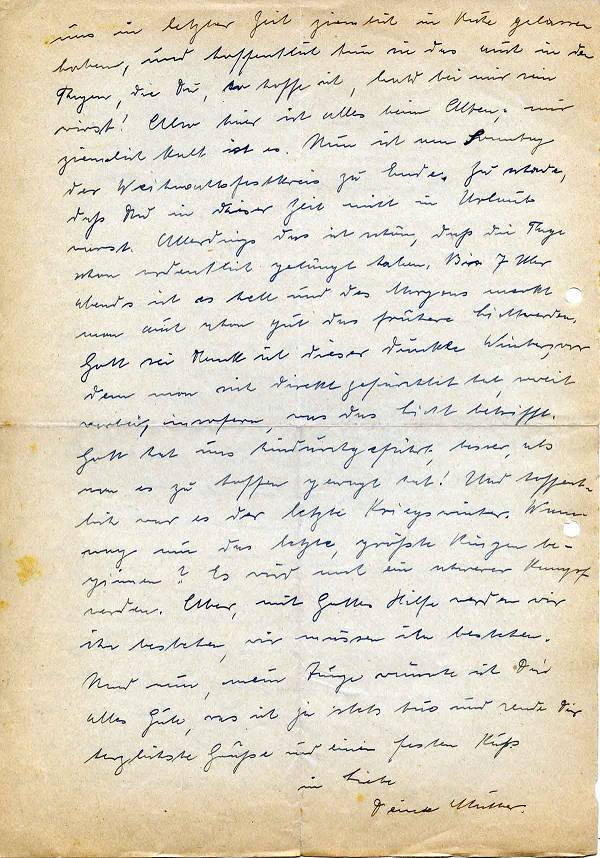 uns in letzter Zeit ziemlich in Ruhe gelassen
haben, und hoffentlich tun sie das auch in den
Tagen, die Du, so hoffe ich, bald bei mir sein
wirst! Also hier ist alles beim Alten; nur
ziemlich kalt ist es. Nun ist am Sonntag
der Weihnachtsfestkreis zu Ende. Zu schade,
daß Du in dieser Zeit nicht in Urlaub
warst. Allerdings das ist schön, daß die Tage
schon ordentlich gelängt haben. Bis 7 Uhr
abends ist es hell und des Morgens merkt
man auch schon gut das frühere Lichtwerden.
Gott sei Dank ist dieser dunkle Winter, vor
dem man sich direkt gefürchtet hat, weit
vorbei, insofern, was das Licht betrifft.
Gott hat uns hindurchgeführt, besser, als
man es zu hoffen gewagt hat! Und hoffent-
lich war es der letzte Kriegswinter. Wann
mag nun das letzte, größte Ringen be-
ginnen? Es wird noch ein schwerer Kampf
werden. Aber, mit Gottes Hilfe werden wir
ihn bestehen, wir müssen ihn bestehen.
Und nun, mein Junge wünsche ich Dir
alles Gute, was ich ja stets tue und sende Dir
herzlichste Grüße und einen festen Kuß
in Liebe
Deine Mutter.